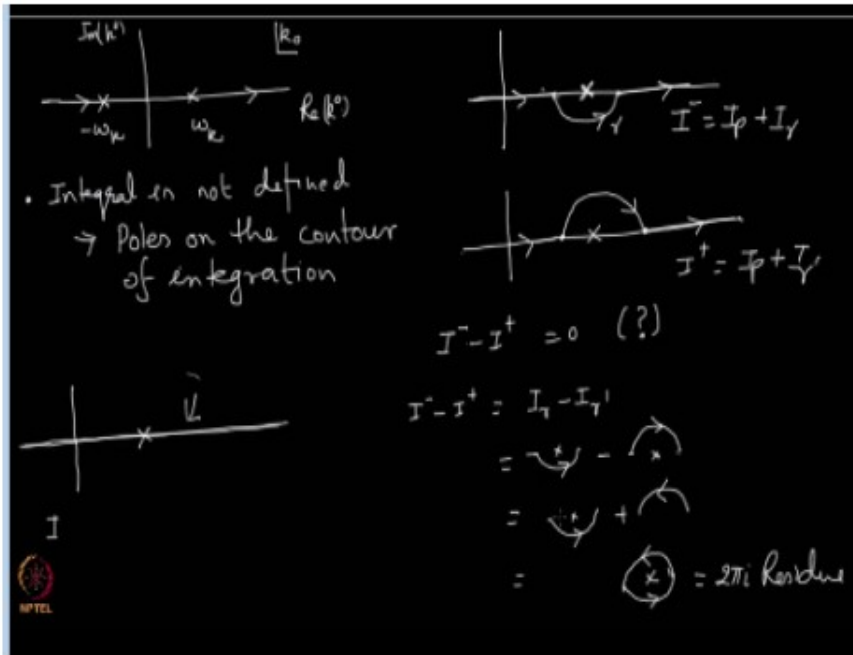 Im(k⁰)
k₀
-ωₖ
ωₖ
Re(k⁰)
• Integral is not defined
→ Poles on the contour
of integration
I
γ
I⁻ = Iₚ + Iᵧ
I⁺ = Iₚ + Iᵧ'
I⁻ - I⁺ = 0 (?)
I⁻ - I⁺ = Iᵧ - Iᵧ'
= -
= +
= = 2πi Residue
NPTEL